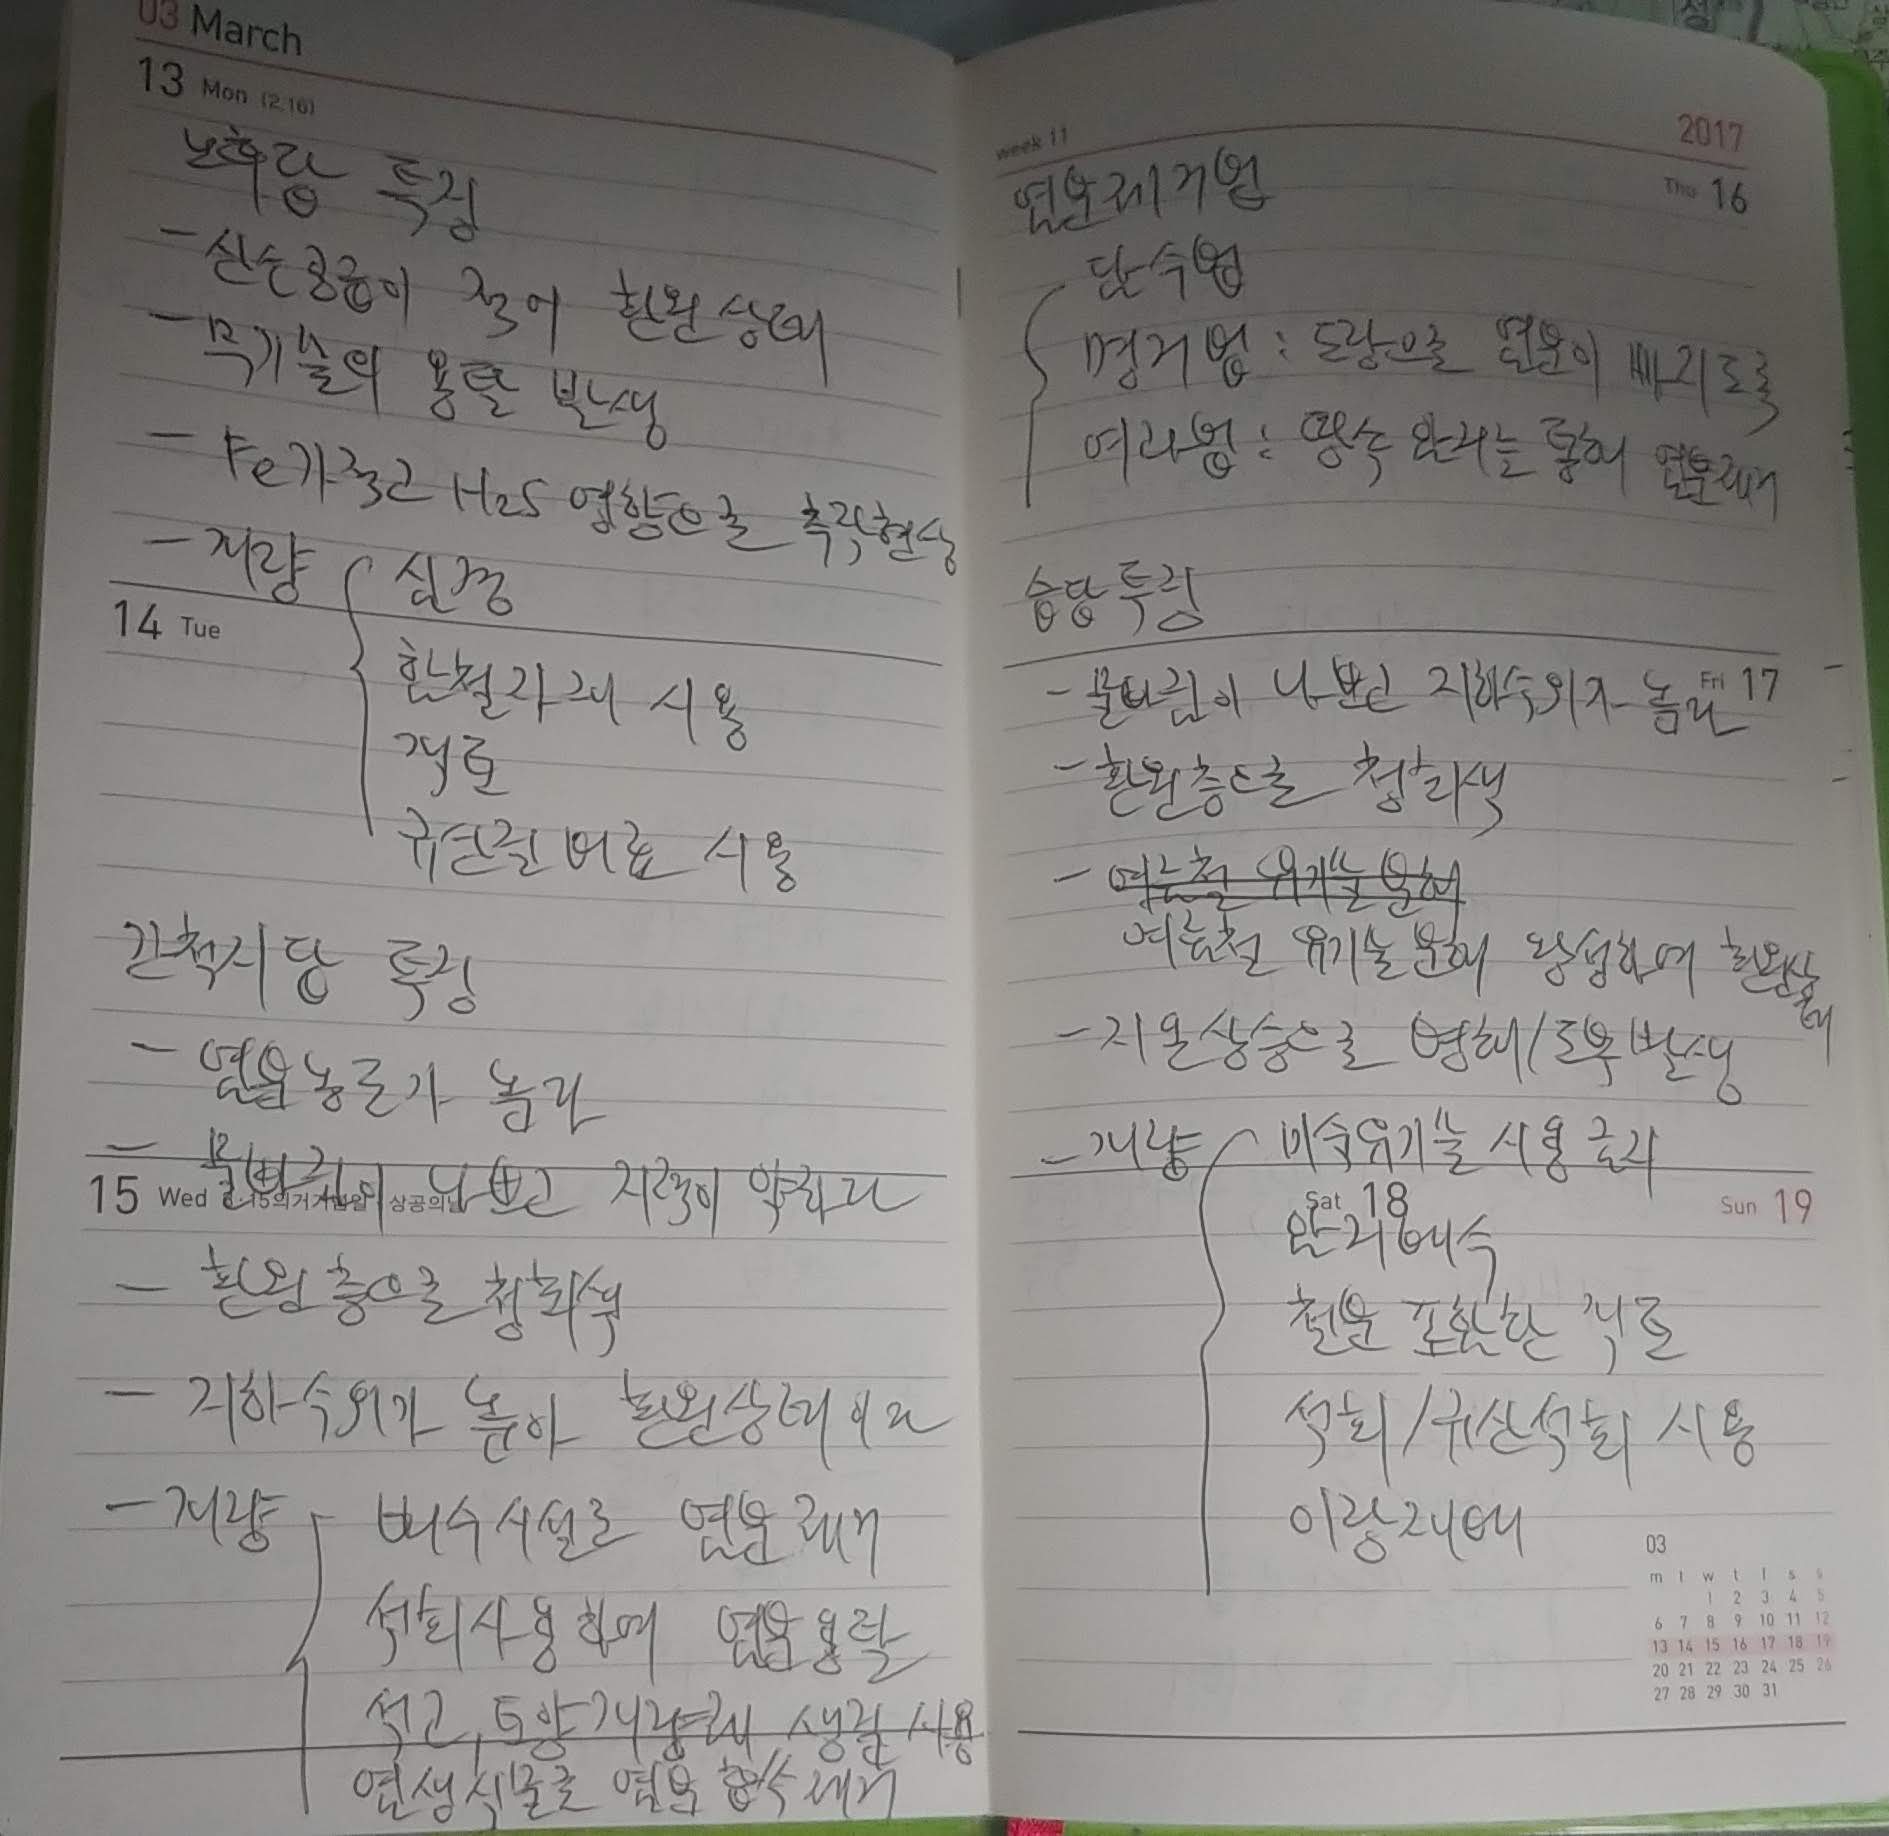 03 March
13 Mon (2.16)
노후답 특징
- 산소공급이 적어 환원상태
- 무기물의 용탈 발생
- Fe가 적고 H2S 영향으로 추락현상
- 개량 심경
14 Tue
함철자재 사용
객토
규산질 비료 사용
간척지답 특징
- 염분농도가 높다
- 물빠짐이 나쁘고 지력이 약하다
15 Wed 3·15의거기념일, 상공의날
- 환원층으로 청회색
- 지하수위가 높아 환원상태이다
- 개량 배수시설로 염분제거
석회사용하여 염분용탈
석고, 토양개량제, 생짚 사용
염생식물로 염분 흡수제거
week 11
2017
Thu 16
염분제거법
담수법
명거법 : 도랑으로 염분이 빠지도록
여과법 : 땅속 암거를 통해 염분제거
습답 특징
- 물빠짐이 나쁘고 지하수위가 높다
Fri 17
- 환원층으로 청회색
- 여름철 유기물분해
여름철 유기물분해 왕성하여 환원상태
- 지온상승으로 병해/도복발생
- 개량 미숙유기물 사용금지
Sat 18
Sun 19
암거배수
철분 포함한 객토
석회/규산석회 사용
이랑재배
03
m t w t f s s
1 2 3 4 5
6 7 8 9 10 11 12
13 14 15 16 17 18 19
20 21 22 23 24 25 26
27 28 29 30 31